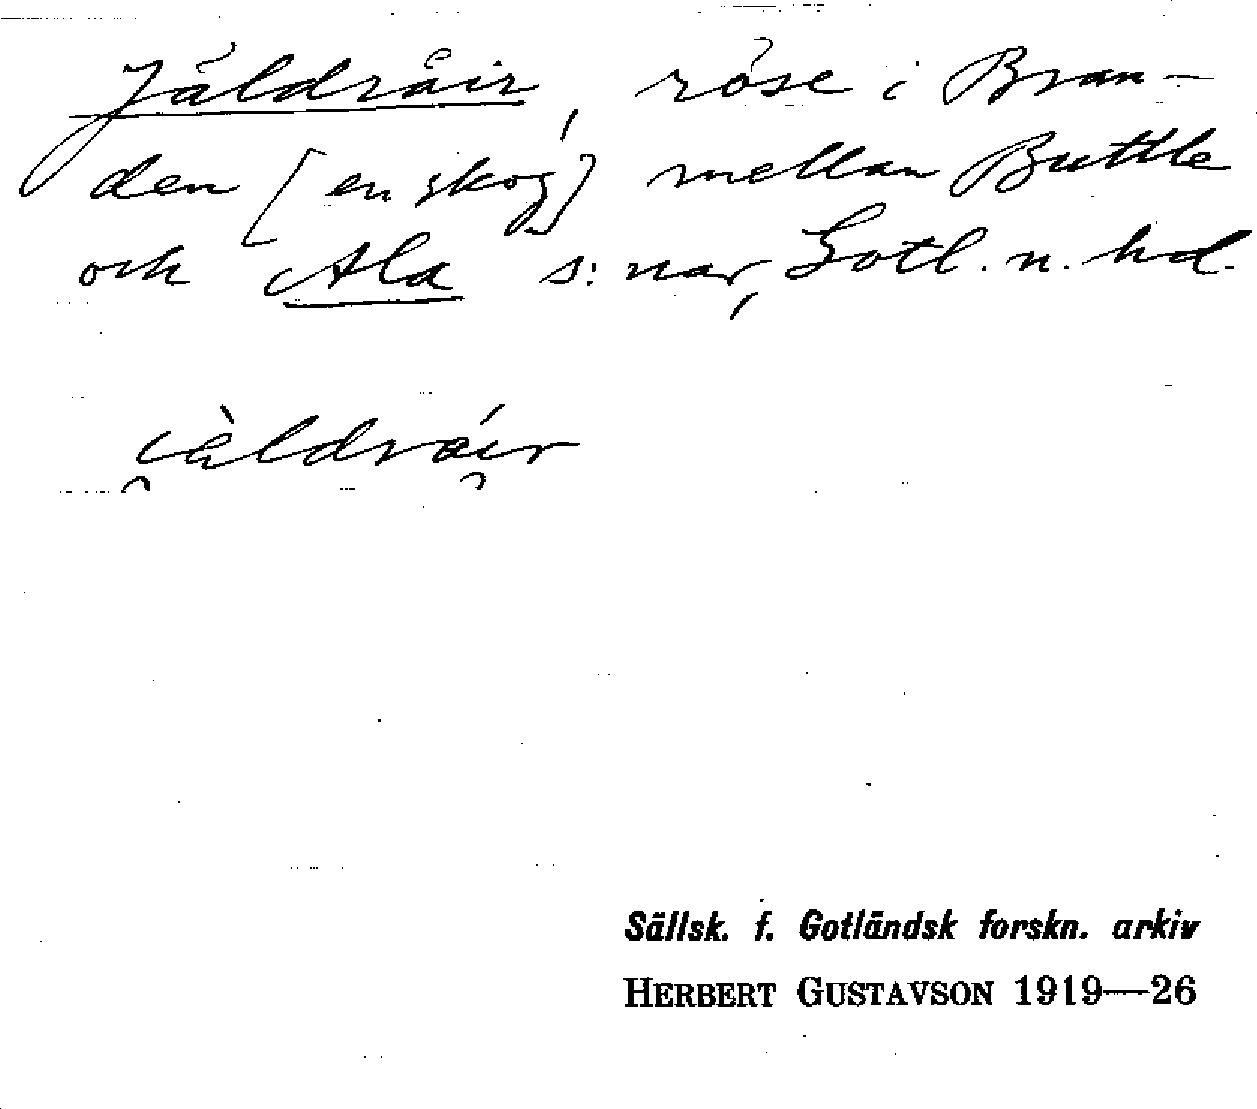 Jäldråir, röse i Bran-
den [en skog] mellan Buttle
och Ala s:nar, Gotl. n. hd.
Sällsk. f. Gotländsk forskn. arkiv
HERBERT GUSTAVSON 1919—26